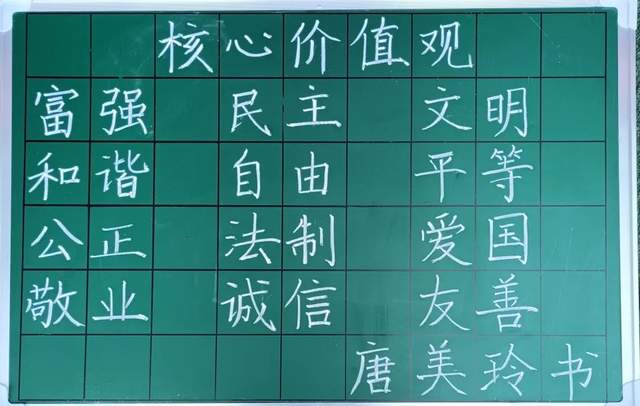 核心价值观
富强 民主 文明
和谐 自由 平等
公正 法制 爱国
敬业 诚信 友善
唐美玲书